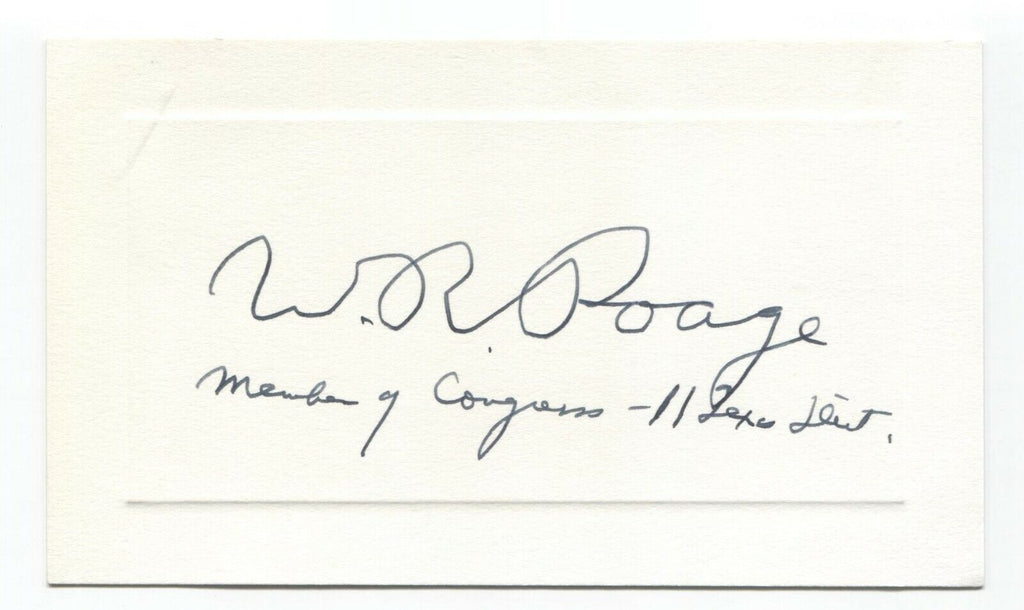 W. R. Poage
Member of Congress - 11 Texas Dist.